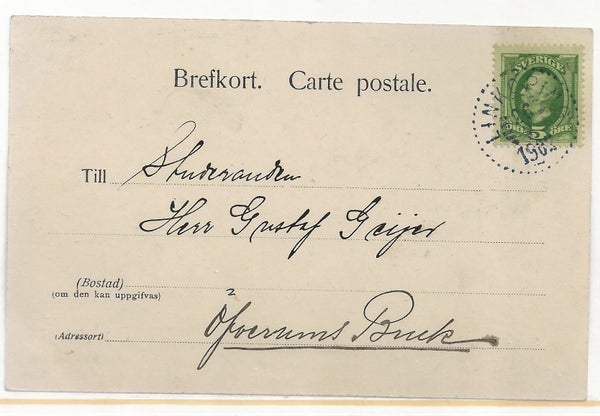 Brefkort. Carte postale.
SVERIGE
5 ÖRE
LINK
190
Till Studeranden
Herr Gustaf Geijer
(Bostad)
(om den kan uppgifvas)
2
(Adressort) Öfverums Bruk